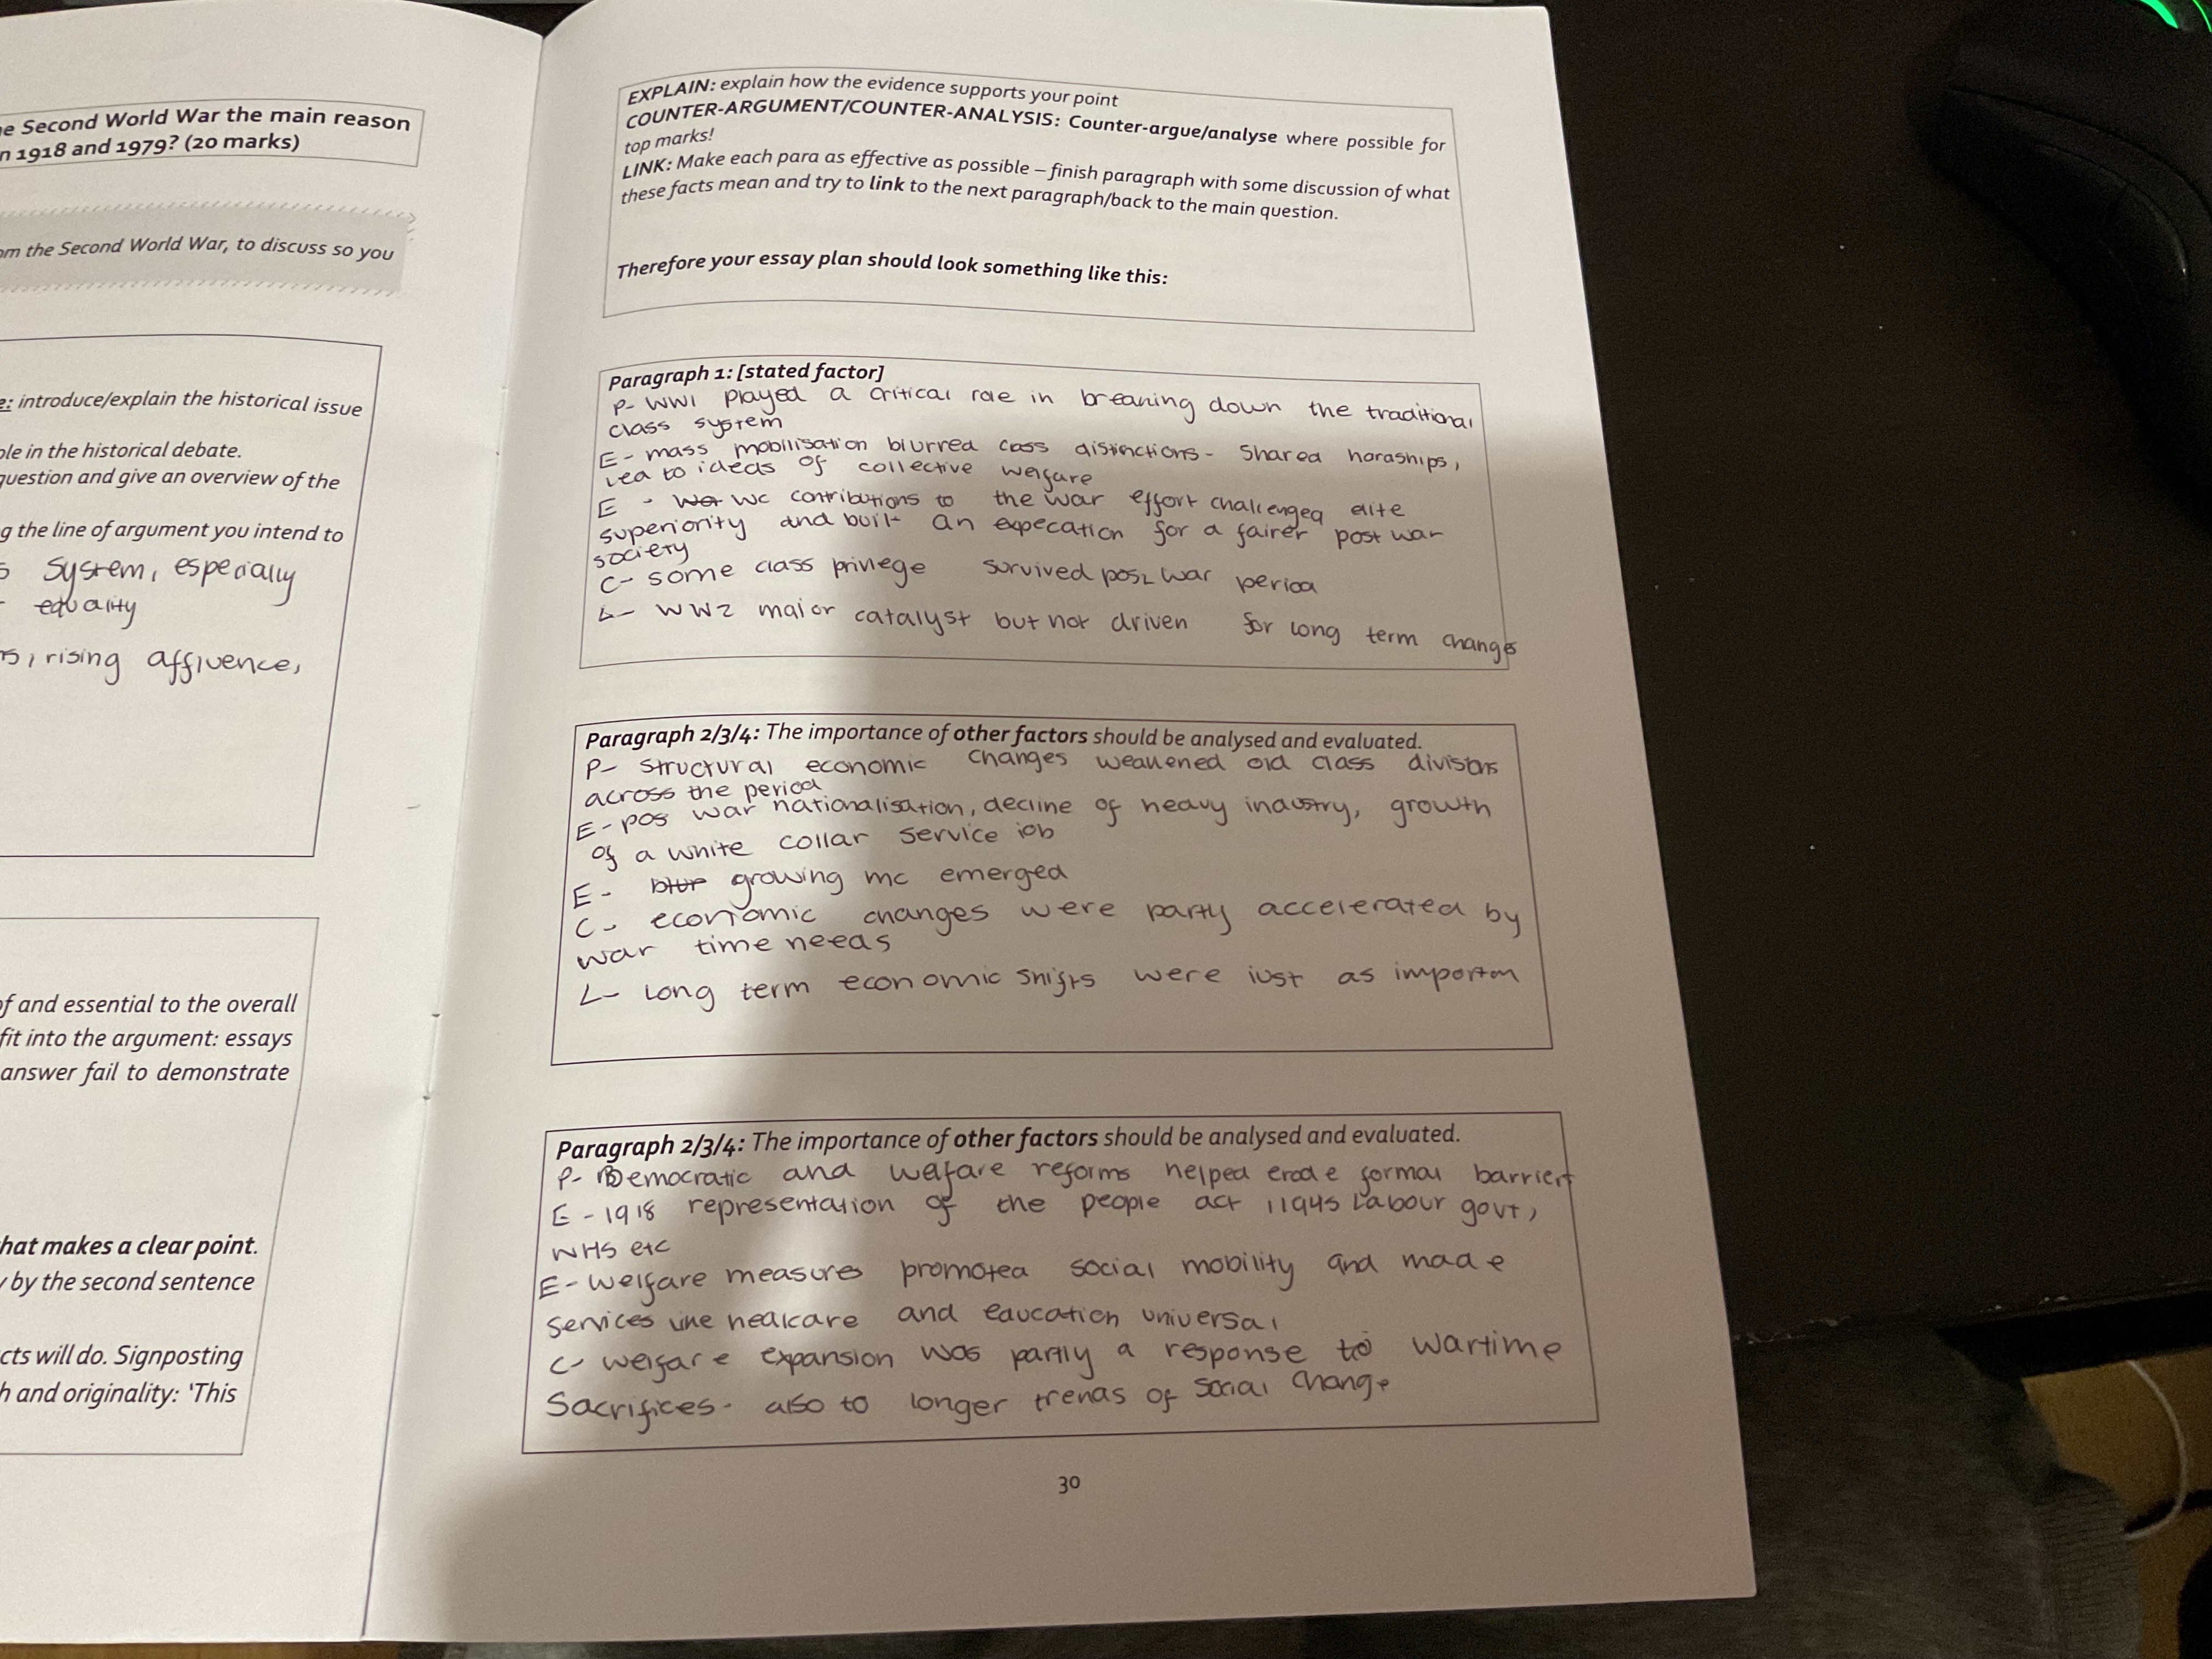 e Second World War the main reason
n 1918 and 1979? (20 marks)
om the Second World War, to discuss so you
e: introduce/explain the historical issue
ole in the historical debate.
question and give an overview of the
g the line of argument you intend to
s system, especially
equality
ns, rising affluence,
f and essential to the overall
fit into the argument: essays
answer fail to demonstrate
hat makes a clear point.
y by the second sentence
cts will do. Signposting
h and originality: 'This
EXPLAIN: explain how the evidence supports your point
COUNTER-ARGUMENT/COUNTER-ANALYSIS: Counter-argue/analyse where possible for
top marks!
LINK: Make each para as effective as possible – finish paragraph with some discussion of what
these facts mean and try to link to the next paragraph/back to the main question.
Therefore your essay plan should look something like this:
Paragraph 1: [stated factor]
P- WW1 played a critical role in breaking down the traditional
class system
E- mass mobilisation blurred class distinctions- shared hardships,
led to ideas of collective welfare
E - WC contributions to the war effort challenged elite
superiority and built an expecation for a fairer post war
society
C- some class privlege survived post war period
L- WW2 major catalyst but not driven for long term changes
Paragraph 2/3/4: The importance of other factors should be analysed and evaluated.
P- structural economic changes weakened old class divisions
across the period
E- pos war nationalisation, decline of heavy industry, growth
of a white collar service job
E- growing mc emerged
C- economic changes were party accelerated by
war time needs
L- long term economic shifts were just as importan
Paragraph 2/3/4: The importance of other factors should be analysed and evaluated.
P- Democratic and welfare reforms helped erode formal barriers
E - 1918 representation of the people act, 1945 Labour govt,
NHS etc
E- welfare measures promoted social mobility and made
services like healcare and education universal
C- welfare expansion was partly a response to wartime
Sacrifices- also to longer trends of social change
30